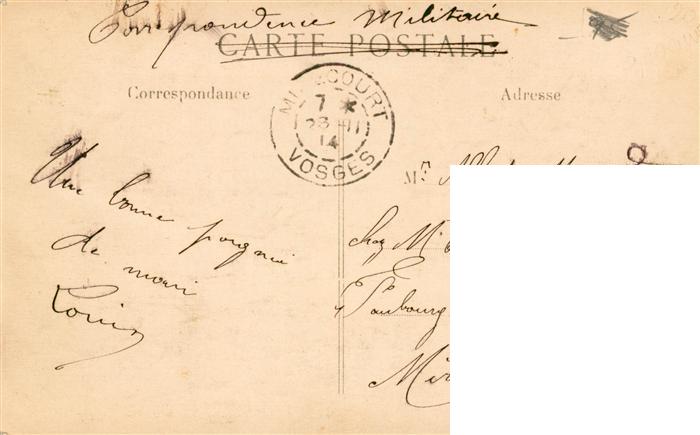 Correspondence Militaire
CARTE POSTALE
Correspondance
Adresse
MIRECOURT
7 *
23 -11
14
VOSGES
Une bonne
de
Louis
Mr
chez M
Faubourg
Mir